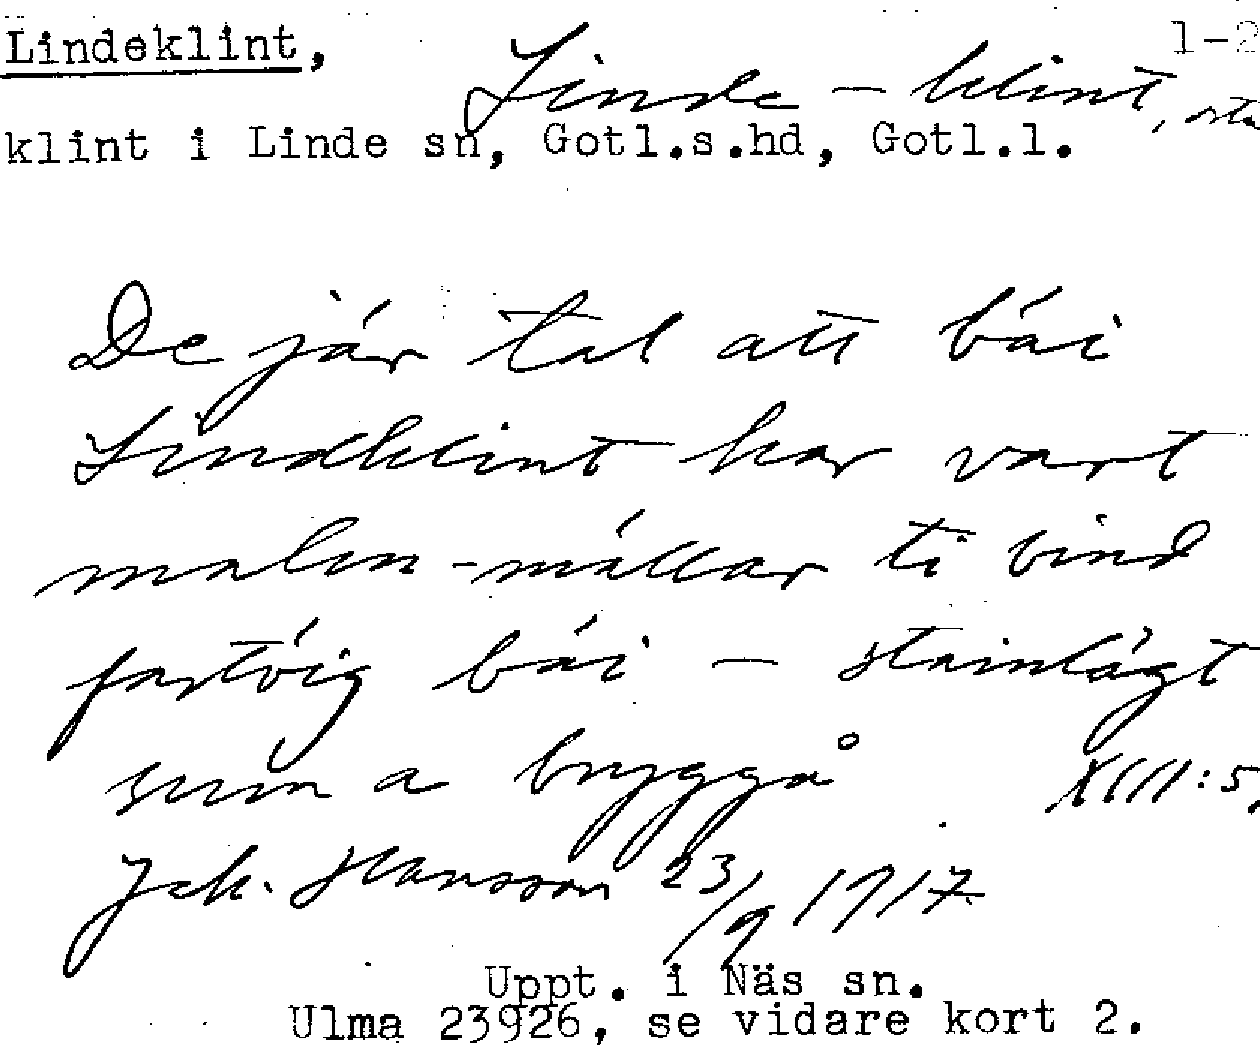 Lindeklint, Linde - klint, 1-2
klint i Linde sn, Gotl.s.hd, Gotl.l.
De jár tal att bái
Lindklint har vart
malen-mállar ti bind
fartóig bái - stainlágt
sum a bryggå XIII:5,
Jak. Hansson 23/9 1917
Uppt. i Näs sn.
Ulma 23926, se vidare kort 2.